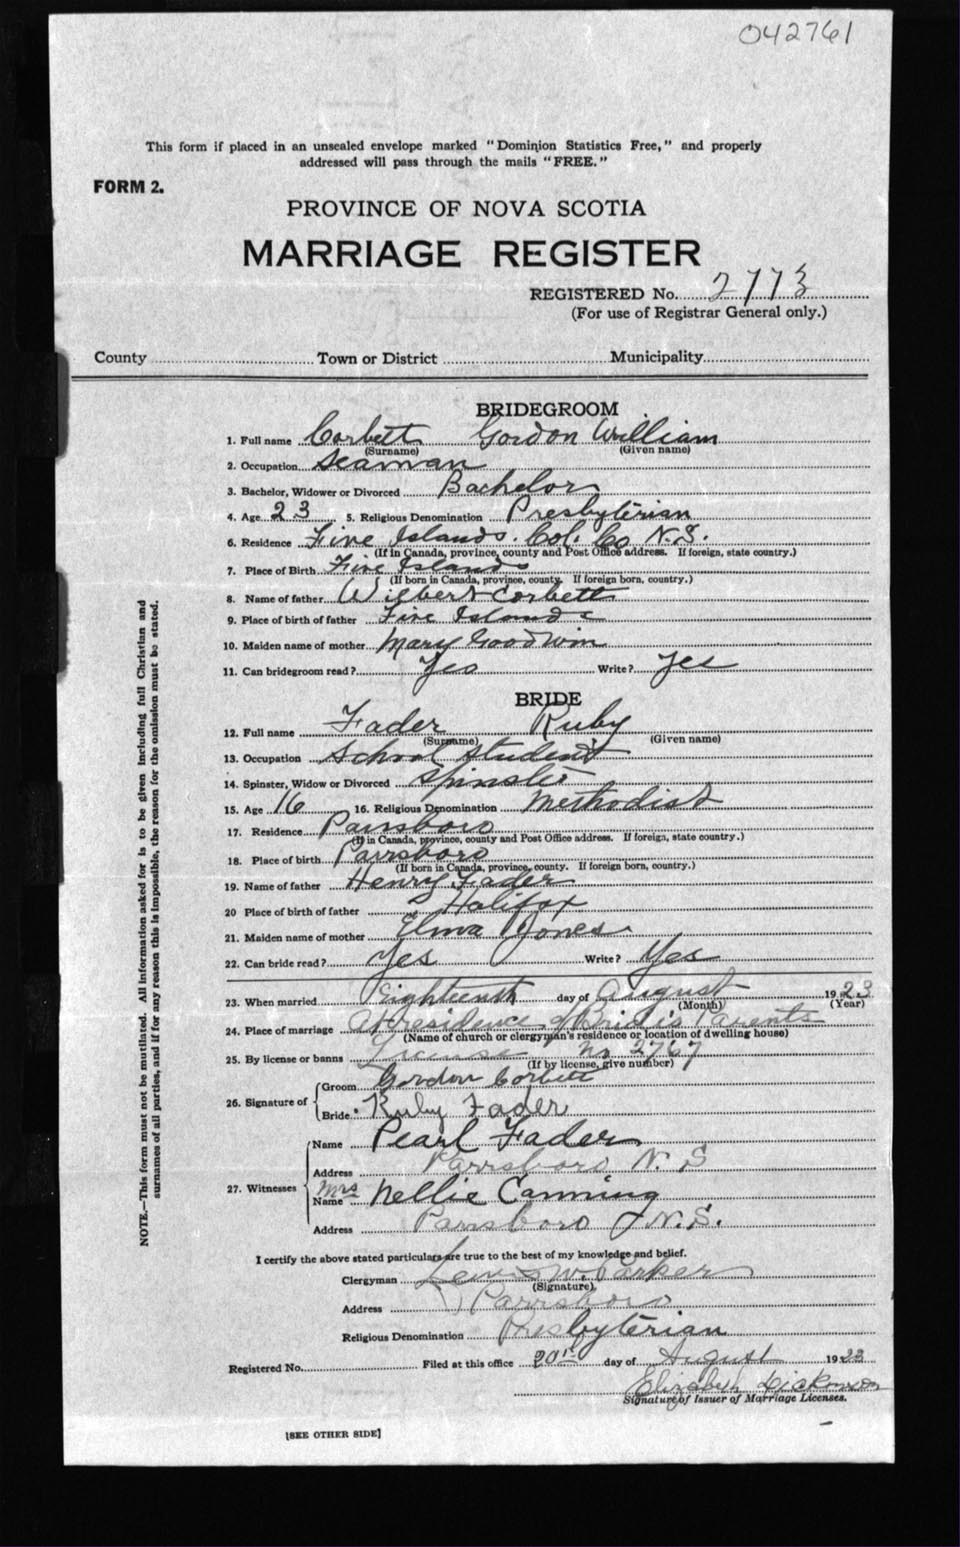 042761
This form if placed in an unsealed envelope marked "Dominion Statistics Free," and properly
addressed will pass through the mails "FREE."
FORM 2.
PROVINCE OF NOVA SCOTIA
MARRIAGE REGISTER
REGISTERED No. 2773
(For use of Registrar General only.)
County Town or District Municipality
BRIDEGROOM
1. Full name Corbett Gordon William
(Surname) (Given name)
2. Occupation Seaman
3. Bachelor, Widower or Divorced Bachelor
4. Age 23 5. Religious Denomination Presbyterian
6. Residence Five Islands. Col. Co N.S.
(If in Canada, province, county and Post Office address. If foreign, state country.)
7. Place of Birth Five Islands
(If born in Canada, province, county. If foreign born, country.)
8. Name of father Wilbert Corbett
9. Place of birth of father Five Islands
10. Maiden name of mother Mary Goodwin
11. Can bridegroom read? Yes Write? Yes
BRIDE
12. Full name Fader Ruby
(Surname) (Given name)
13. Occupation School Student
14. Spinster, Widow or Divorced Spinster
15. Age 16 16. Religious Denomination Methodist
17. Residence Parrsboro
(If in Canada, province, county and Post Office address. If foreign, state country.)
18. Place of birth Parrsboro
(If born in Canada, province, county. If foreign born, country.)
19. Name of father Henry Fader
20 Place of birth of father Halifax
21. Maiden name of mother Elma Jones
22. Can bride read? Yes Write? Yes
23. When married Eighteenth day of August 1923
(Month) (Year)
24. Place of marriage At Residence of Bride's Parents
(Name of church or clergyman's residence or location of dwelling house)
25. By license or banns License No 2767
(If by license, give number)
26. Signature of Groom Gordon Corbett
Bride Ruby Fader
27. Witnesses Name Pearl Fader
Address Parrsboro N.S
Name Mrs Nellie Canning
Address Parrsboro N.S.
I certify the above stated particulars are true to the best of my knowledge and belief.
Clergyman Lewis W. Parker
(Signature)
Address Parrsboro
Religious Denomination Presbyterian
Registered No. Filed at this office 20th day of August 1923
Dickinson
Signature of Issuer of Marriage Licenses.
[SEE OTHER SIDE]
NOTE.—This form must not be mutilated. All information asked for is to be given including full Christian and
surnames of all parties, and if for any reason this is impossible, the reason for the omission must be stated.